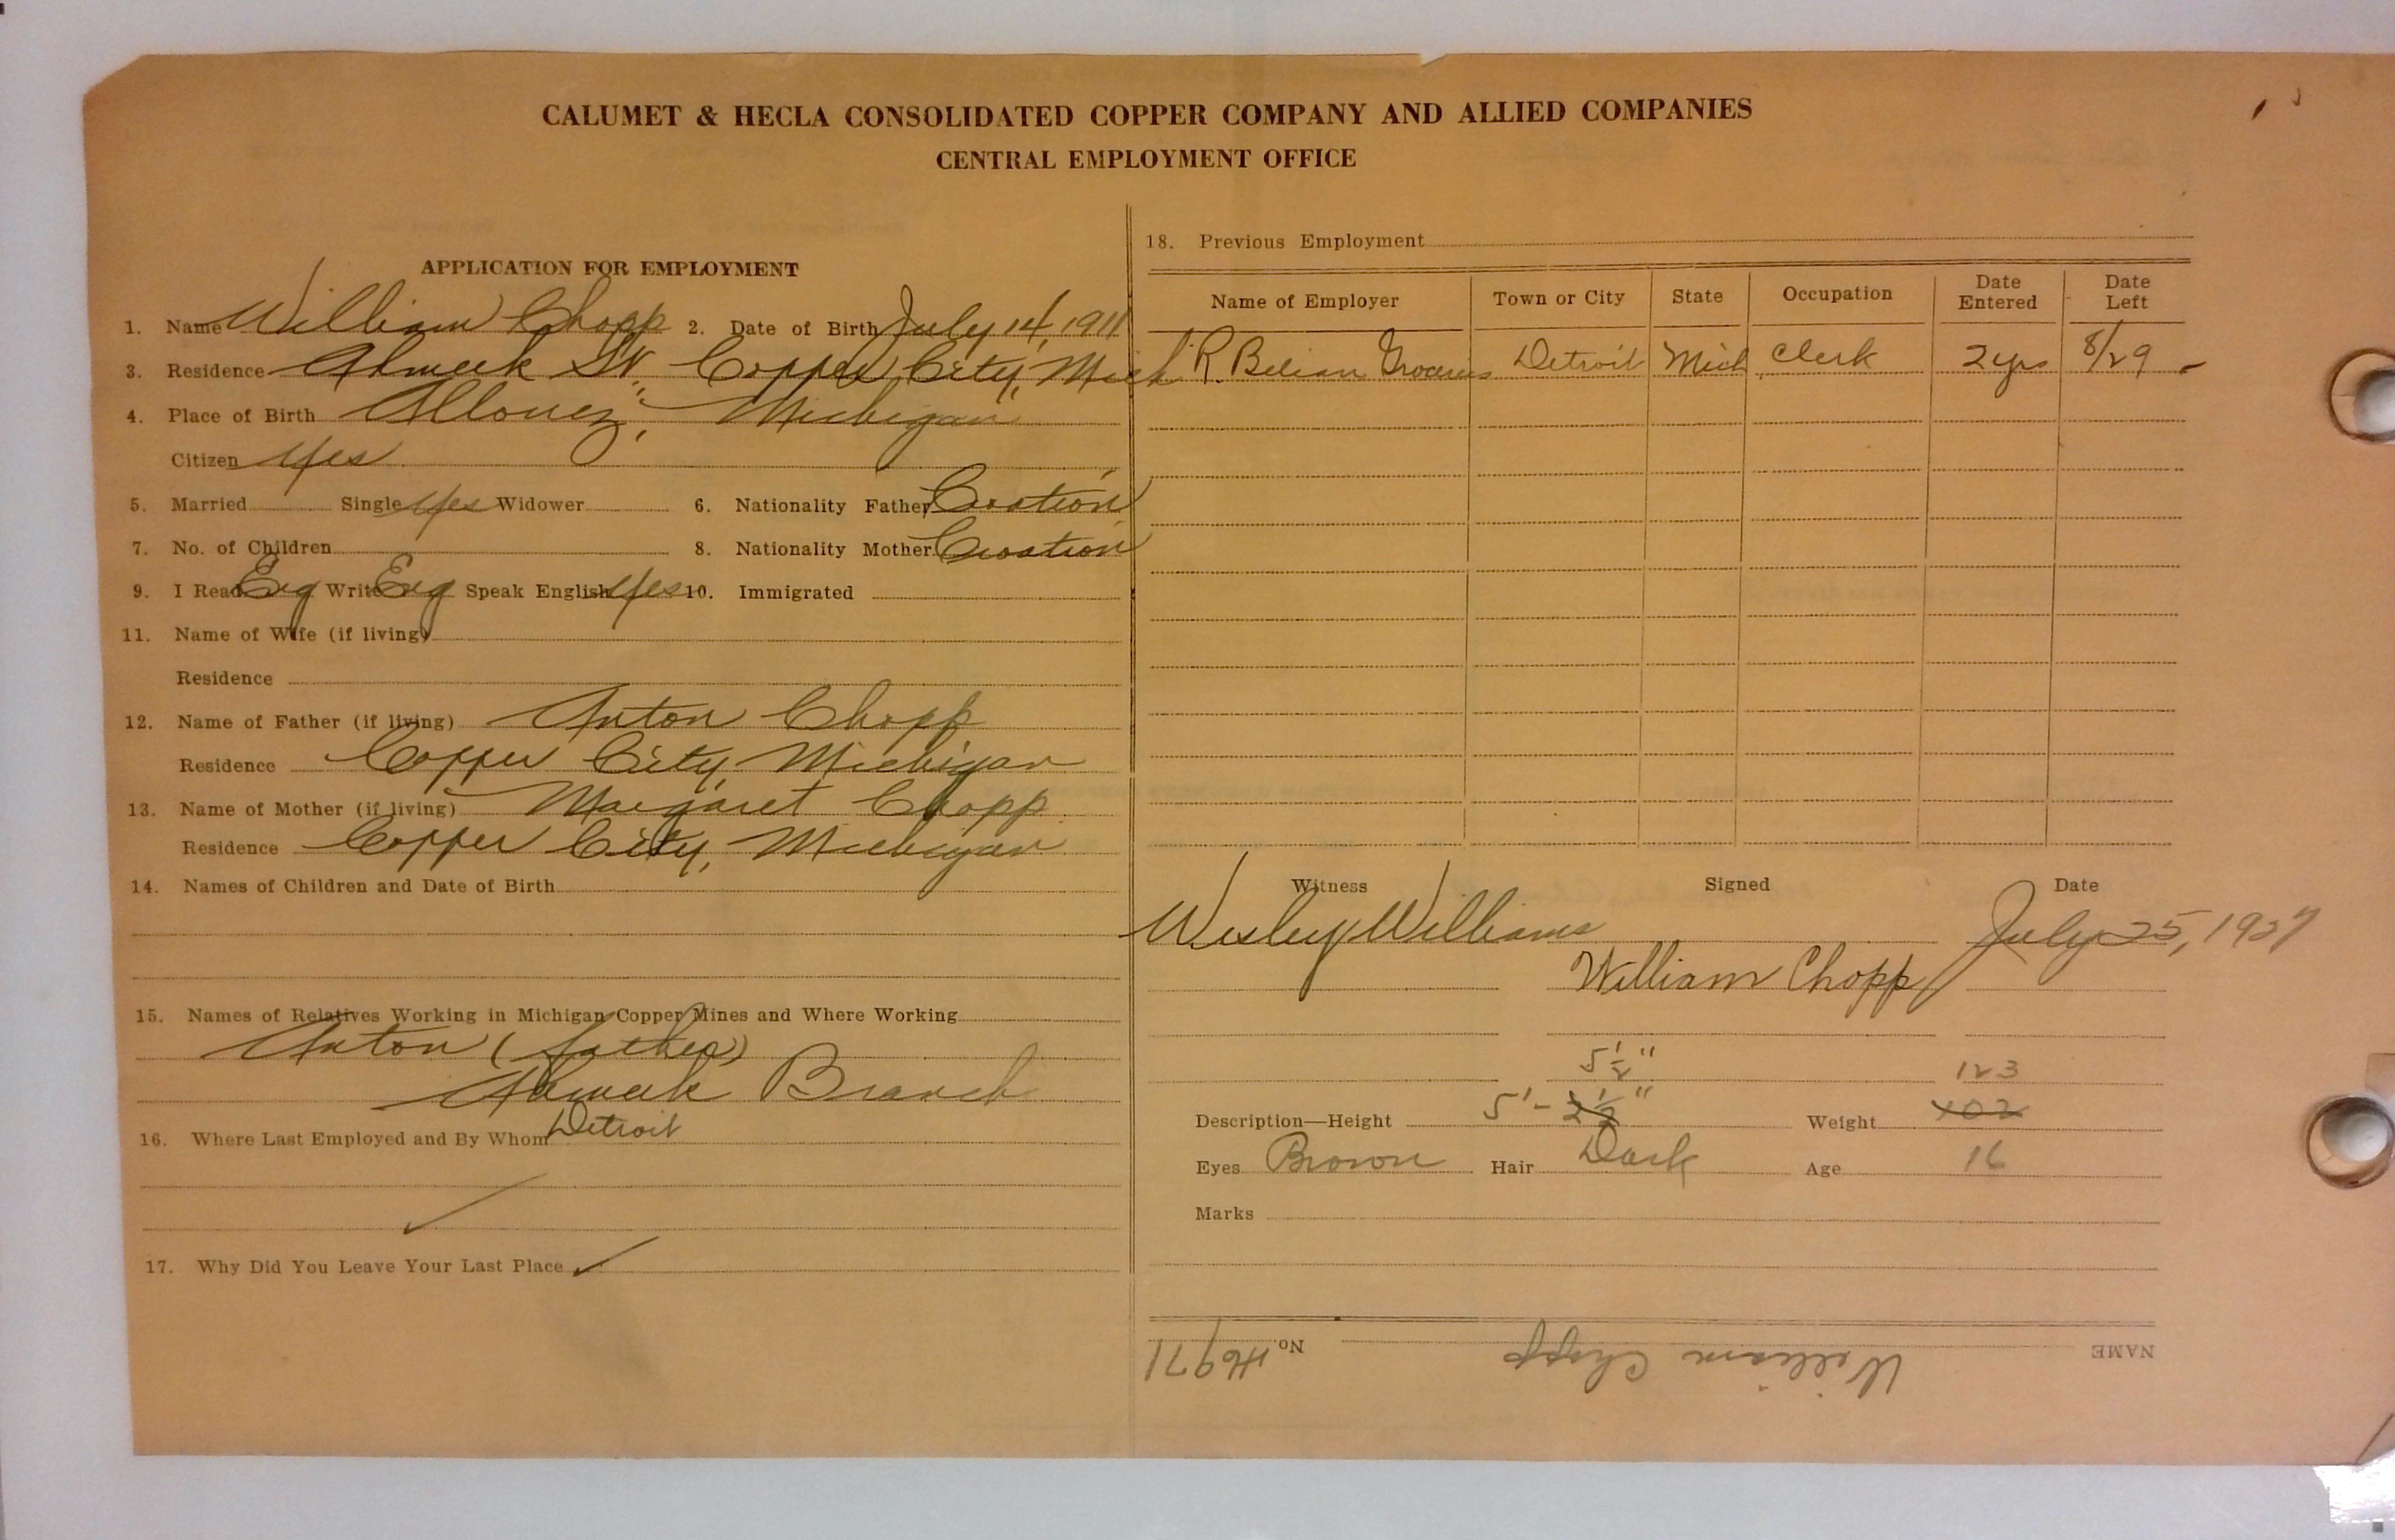 CALUMET & HECLA CONSOLIDATED COPPER COMPANY AND ALLIED COMPANIES
CENTRAL EMPLOYMENT OFFICE
APPLICATION FOR EMPLOYMENT
1. Name William Chopp 2. Date of Birth July 14, 1911
3. Residence Ahmeek St., Copper City, Mich.
4. Place of Birth Allouez, Michigan
Citizen Yes
5. Married Single Yes Widower 6. Nationality Father Croation
7. No. of Children 8. Nationality Mother Croation
9. I Read Eng Write Eng Speak English Yes 10. Immigrated
11. Name of Wife (if living)
Residence
12. Name of Father (if living) Anton Chopp
Residence Copper City, Michigan
13. Name of Mother (if living) Margaret Chopp
Residence Copper City, Michigan
14. Names of Children and Date of Birth
15. Names of Relatives Working in Michigan Copper Mines and Where Working
Anton (father)
Ahmeek Branch
16. Where Last Employed and By Whom Detroit
17. Why Did You Leave Your Last Place
18. Previous Employment
Name of Employer Town or City State Occupation Date Entered Date Left
R. Belian Groceries Detroit Mich Clerk 2 yrs 8/29
Witness Signed Date
Wesley Williams July 25, 1927
William Chopp
5 1/2" 123
Description—Height 5' - 2 1/2" Weight 102
Eyes Brown Hair Dark Age 16
Marks
NAME William Chopp No. H6971